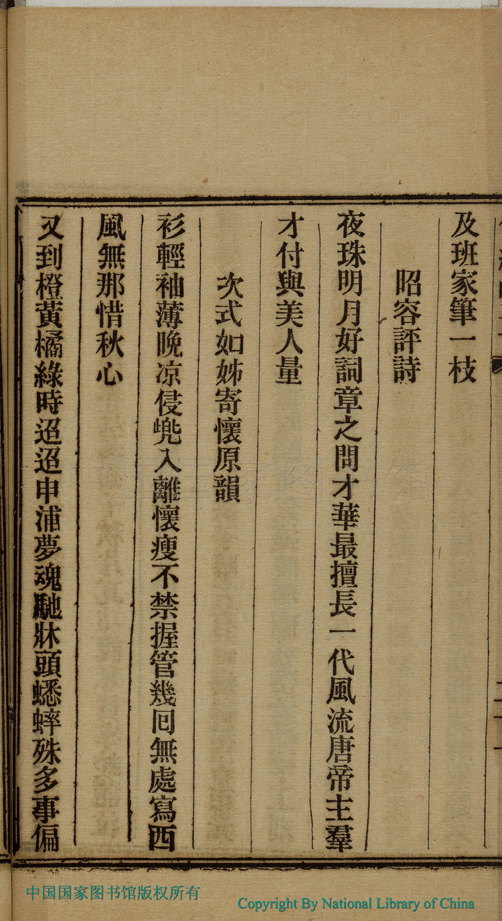 及班家筆一枝
昭容評詩
夜珠明月好詞章之問才華最擅長一代風流唐帝主羣
才付與美人量
次式如姊寄懷原韻
衫輕袖薄晚凉侵兠入離懷瘦不禁握管幾回無處寫西
風無那惜秋心
又到橙黃橘綠時迢迢申浦夢魂馳牀頭蟋蟀殊多事偏
中国国家图书馆版权所有
Copyright By National Library of China